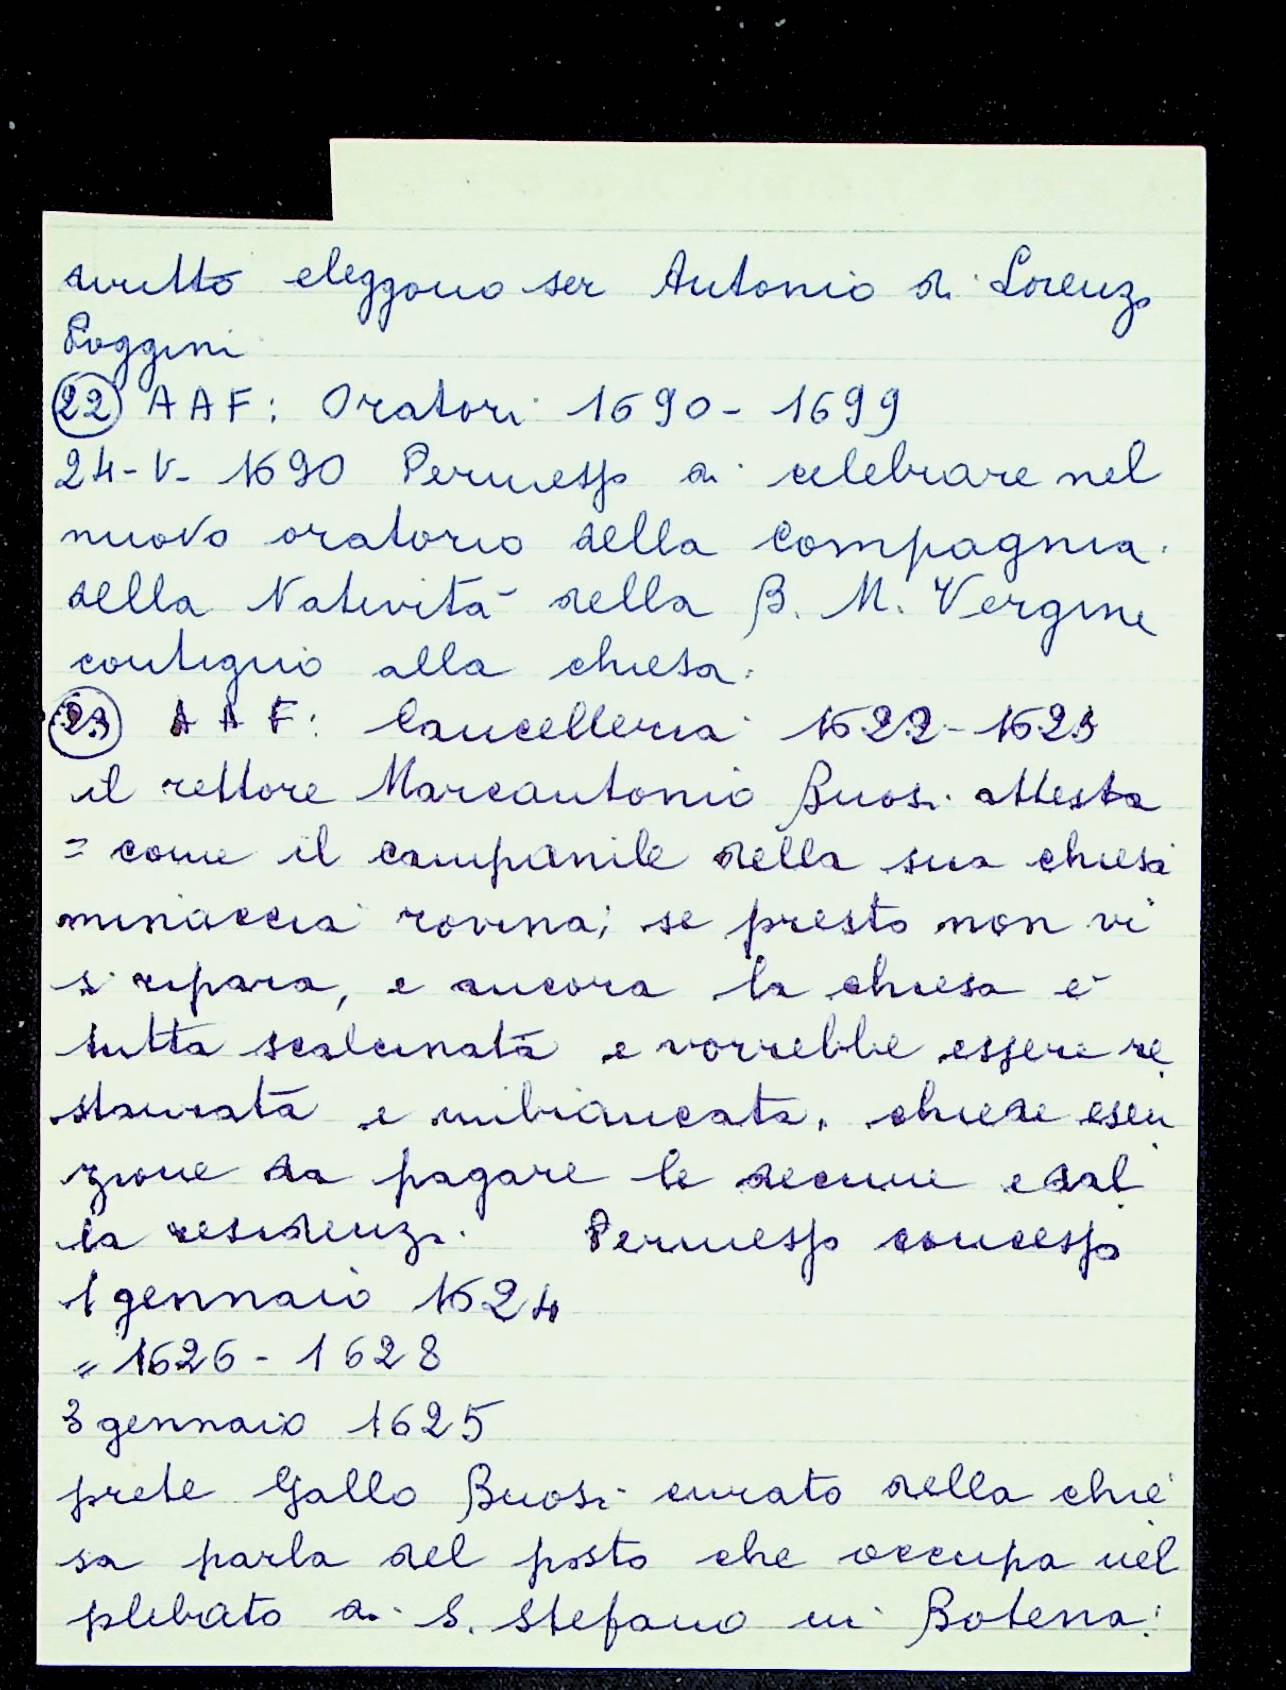 diritto eleggono ser Antonio di Lorenzo
Poggini
22 AAF: Oratori 1690-1699
24-V-1690 Permesso di celebrare nel
nuovo oratorio della Compagnia
della Natività della B. M. Vergine
contiguo alla chiesa.
23 AAF: Cancelleria 1622-1623
il rettore Marcantonio Buosi attesta
= come il campanile della sua chiesa
minaccia rovina; se presto non vi
si ripara, e ancora la chiesa è
tutta scalcinata e vorrebbe essere re
staurata e imbiancata. chiede esen
zione da pagare le decime e dal
la residenza. Permesso concesso
1 gennaio 1624
" 1626-1628
3 gennaio 1625
prete Gallo Buosi curato della chie
sa parla del posto che occupa nel
plebato di S. Stefano in Botena: